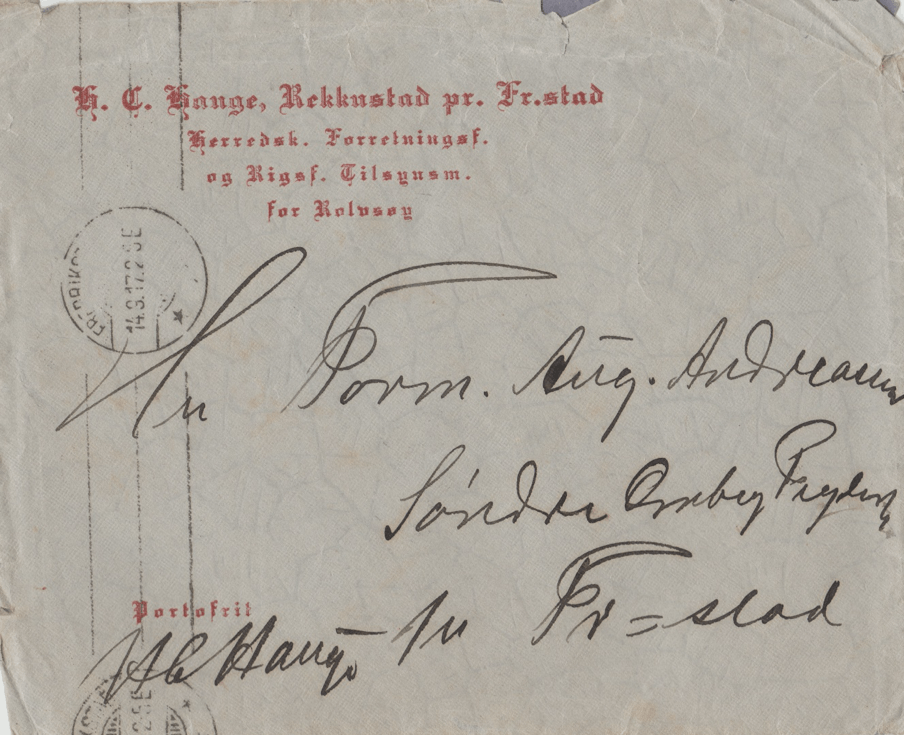 H. C. Hauge, Rekkustad pr. Fr.stad
Herredsk. Forretningsf.
og Rigsf. Tilsynsm.
for Rolvsøy
14.9.17.2-8E
Hr Form. Aug. Andreasen
Søndre Omberg
Fr=stad
Portofrit
HC Hauge
2-8E